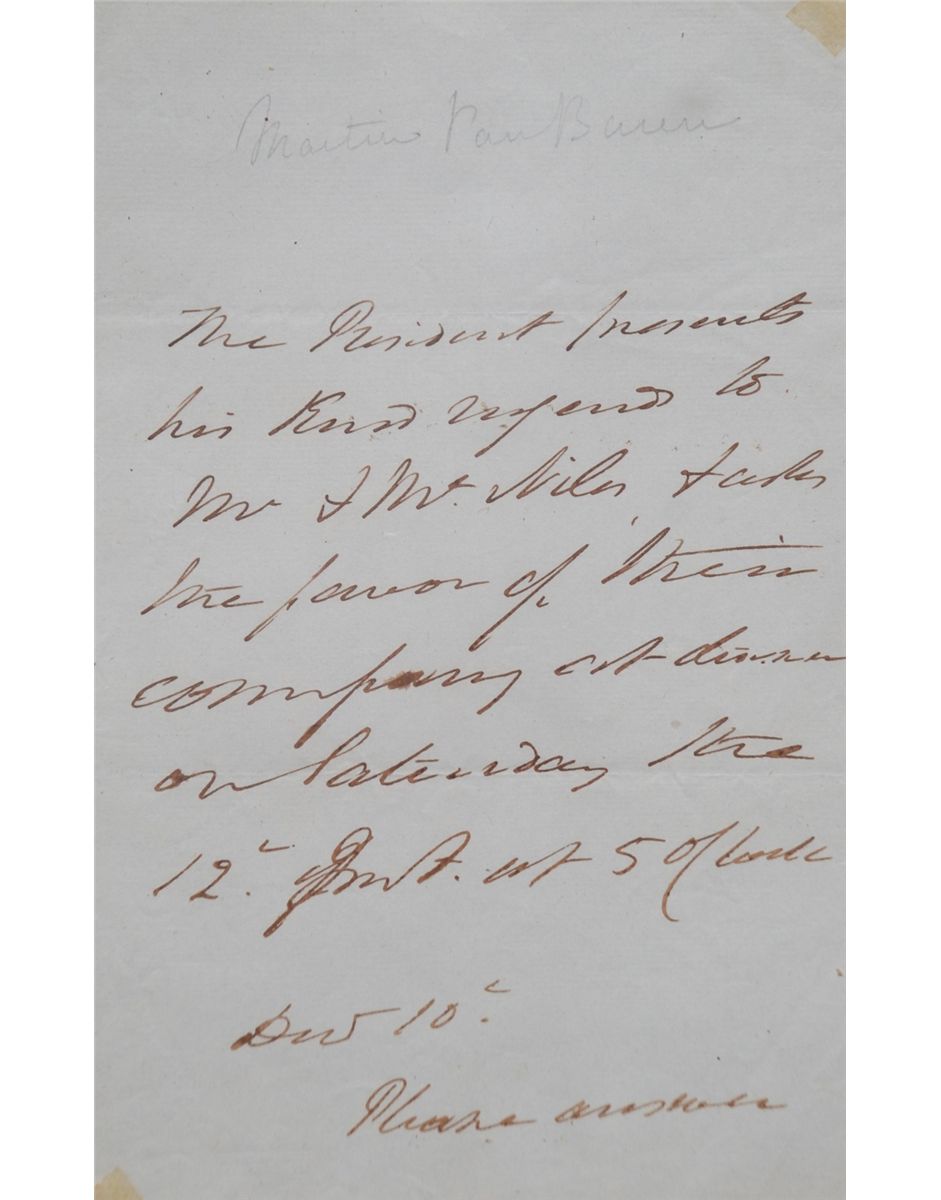 Martin Van Buren
The President presents
his Kind regards to
Mr & Mrs. Niles & asks
the favor of their
company at dinner
on Saturday the
12t. Inst. at 5 OClock
Dec 10t.
Please answer